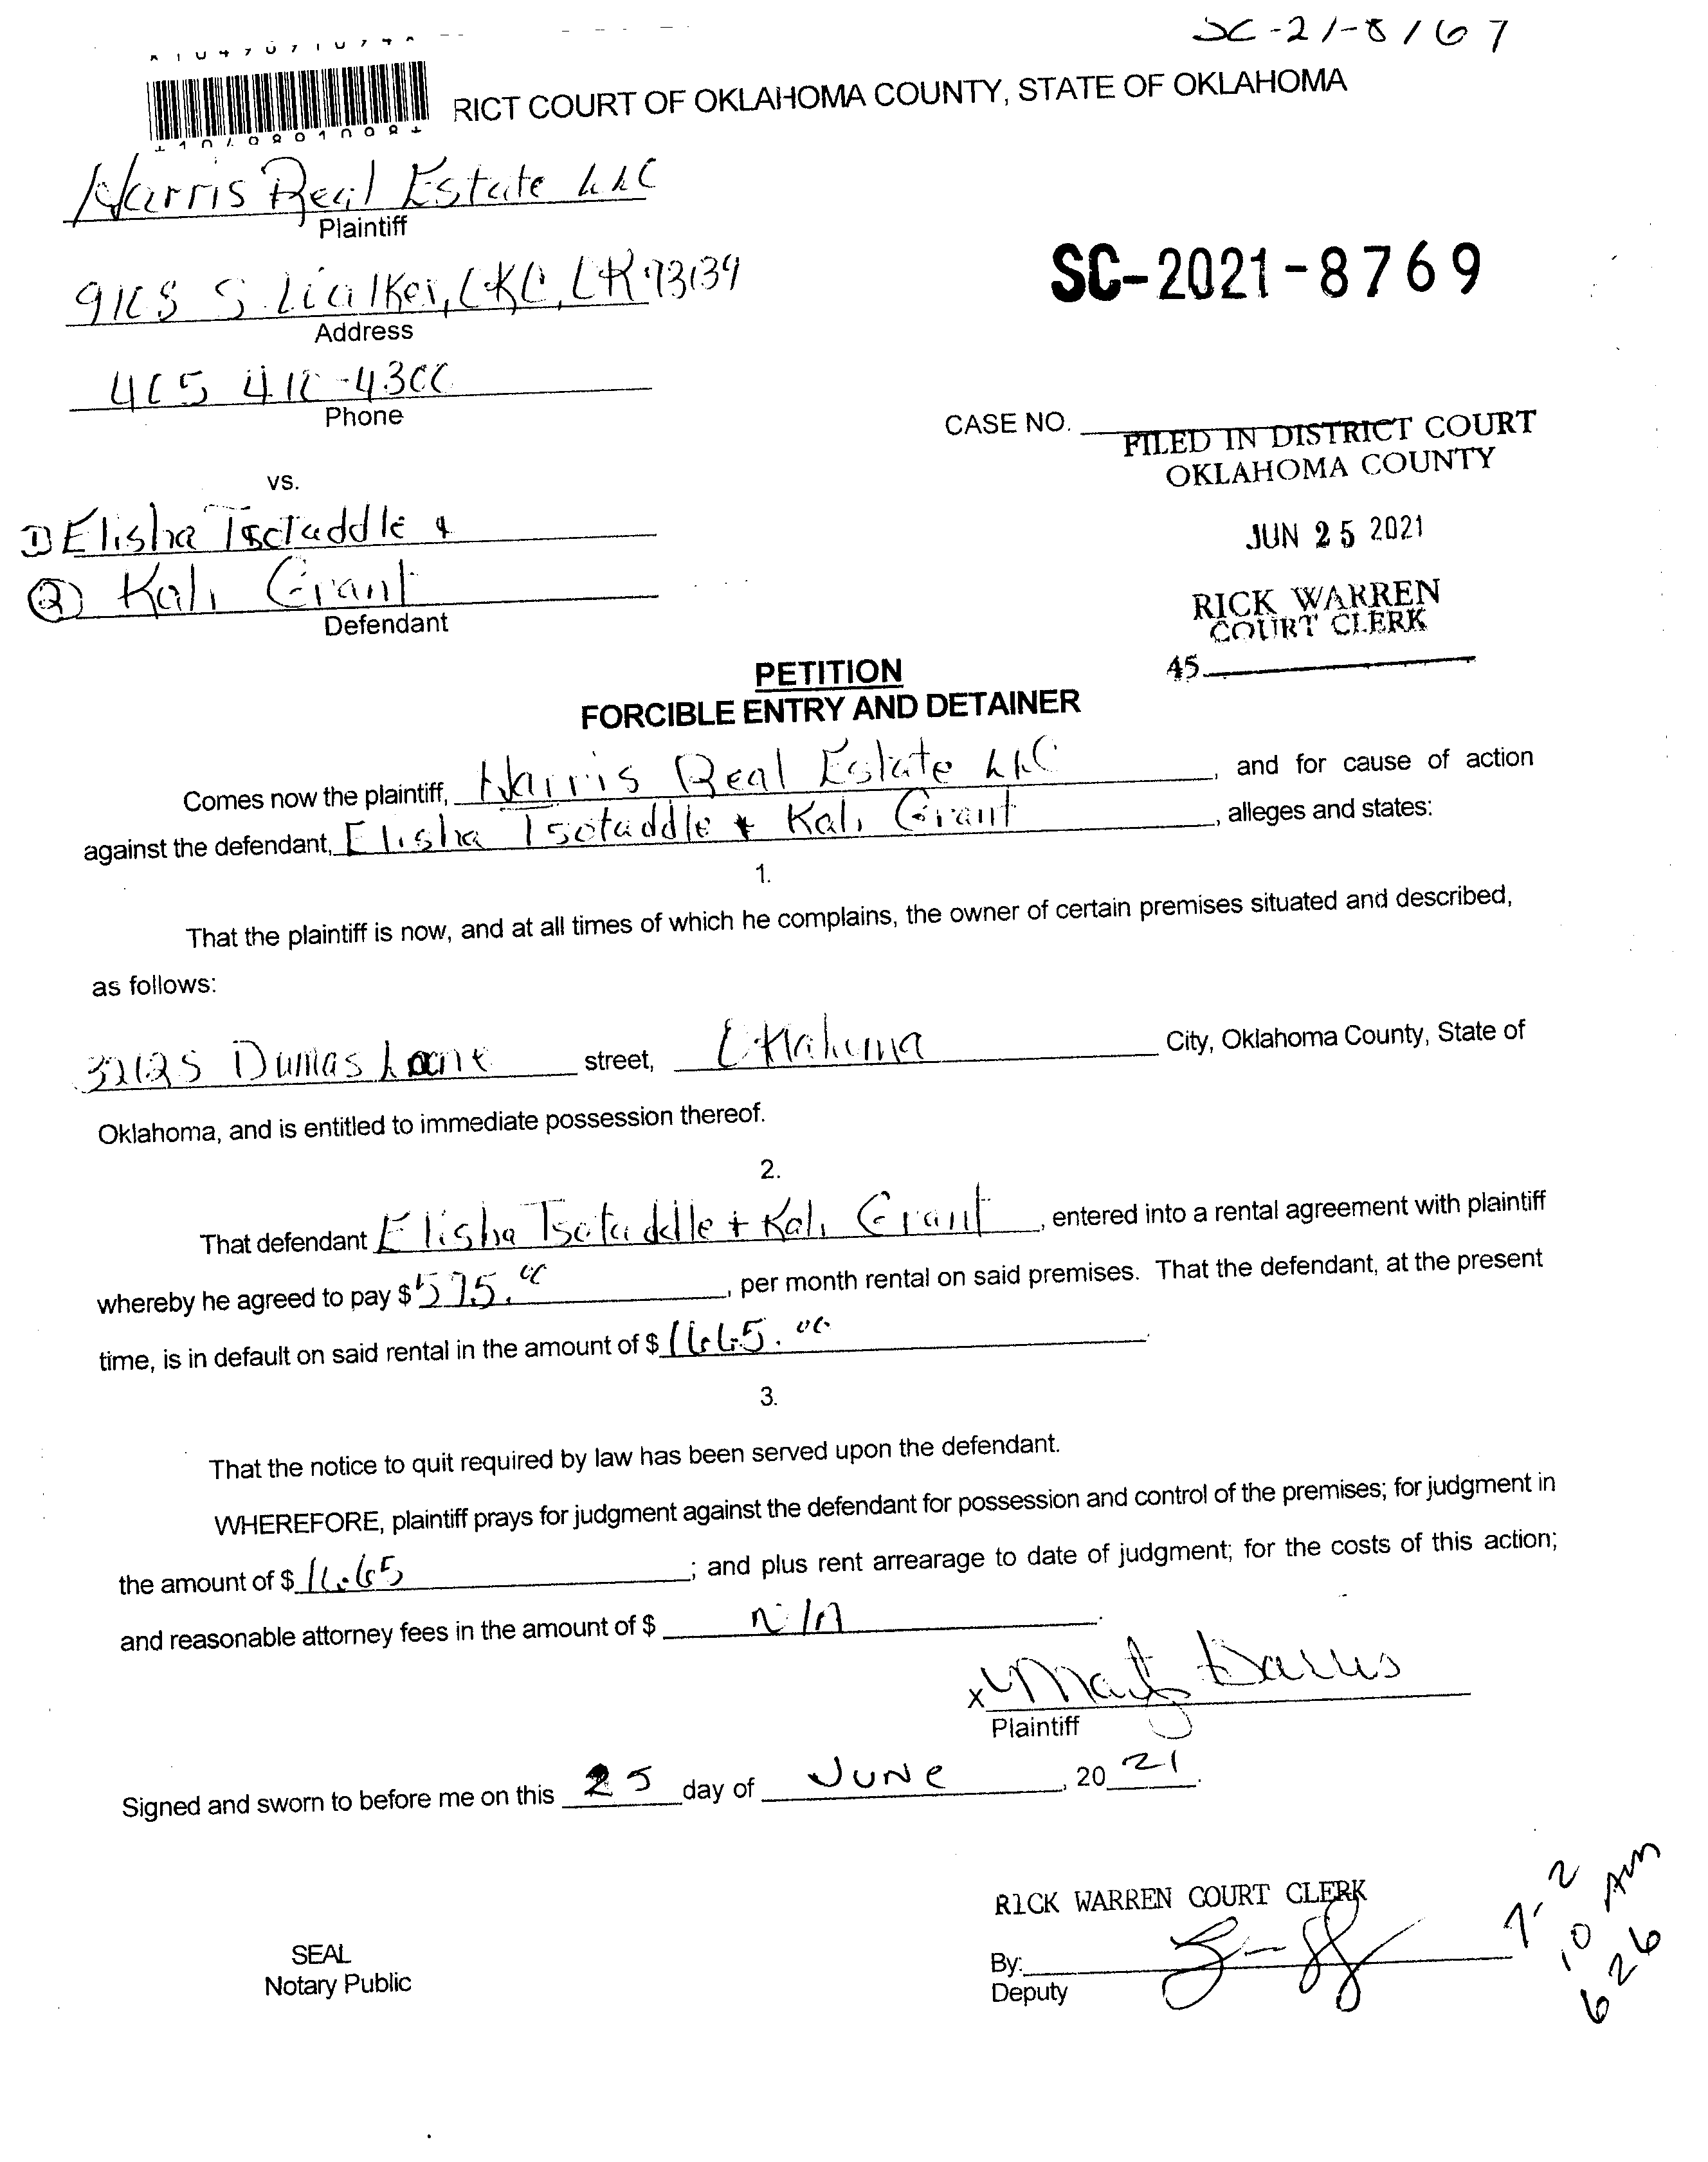 SC-21-8167
RICT COURT OF OKLAHOMA COUNTY, STATE OF OKLAHOMA
Harris Real Estate LLC
Plaintiff
SC-2021-8769
9108 S. Walker, OKC, OK 73139
Address
405 410-4300
Phone
CASE NO.
FILED IN DISTRICT COURT
OKLAHOMA COUNTY
vs.
JUN 25 2021
1) Elisha Tsotaddle &
2) Kali Grant
Defendant
RICK WARREN
COURT CLERK
45
PETITION
FORCIBLE ENTRY AND DETAINER
Comes now the plaintiff, Harris Real Estate LLC, and for cause of action
against the defendant, Elisha Tsotaddle + Kali Grant, alleges and states:
1.
That the plaintiff is now, and at all times of which he complains, the owner of certain premises situated and described,
as follows:
3212 S Dumas Lane street, Oklahoma City, Oklahoma County, State of
Oklahoma, and is entitled to immediate possession thereof.
2.
That defendant Elisha Tsotaddle + Kali Grant, entered into a rental agreement with plaintiff
whereby he agreed to pay $575.00, per month rental on said premises. That the defendant, at the present
time, is in default on said rental in the amount of $1665.00.
3.
That the notice to quit required by law has been served upon the defendant.
WHEREFORE, plaintiff prays for judgment against the defendant for possession and control of the premises; for judgment in
the amount of $1665; and plus rent arrearage to date of judgment; for the costs of this action;
and reasonable attorney fees in the amount of $ N/A.
x
Plaintiff
Signed and sworn to before me on this 25 day of June, 2021.
RICK WARREN COURT CLERK
SEAL
Notary Public
By:
Deputy
7-2
10 Am
626